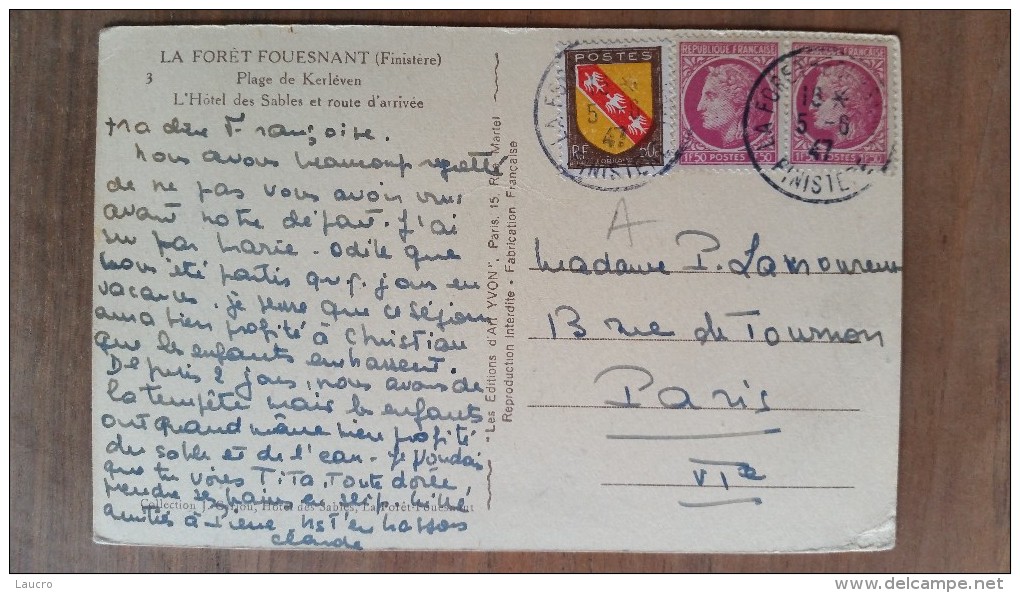 LA FORÊT FOUESNANT (Finistère)
3 Plage de Kerléven
L'Hôtel des Sables et route d'arrivée
Ma chère Françoise.
Nous avons beaucoup regretté
de ne pas vous avoir vus
avant notre départ. J'ai
su par Marie-Odile que
vous n'été partis qu'
jours en
vacances. Je pense que ce séjour
aura bien profité à Christian
que les enfants embrassent.
Depuis 2 jours, nous avons de
la tempête mais les enfants
ont quand même bien profité
du sable et de l'eau. Je voudrais
que tu voies Tita. Toute dorée
prendre ses bains en slip. Mille
amitiés à Pierre.
t'embrasse
Claude
Collection J. Hôtel des Sables, La Forêt-Fouesnant
"Les Editions d'Art YVON", Paris, 15, Rue Martel
Reproduction Interdite - Fabrication Française
POSTES
RF LORRAINE
REPUBLIQUE FRANÇAISE
1F50 POSTES 1F50
LA FORET
5
47
FINISTERE
LA FORET
18
5-6
47
FINISTERE
A
Madame P. Lamoureux
13 rue de Tournon
Paris
VIe
Laucro
www.delcampe.net